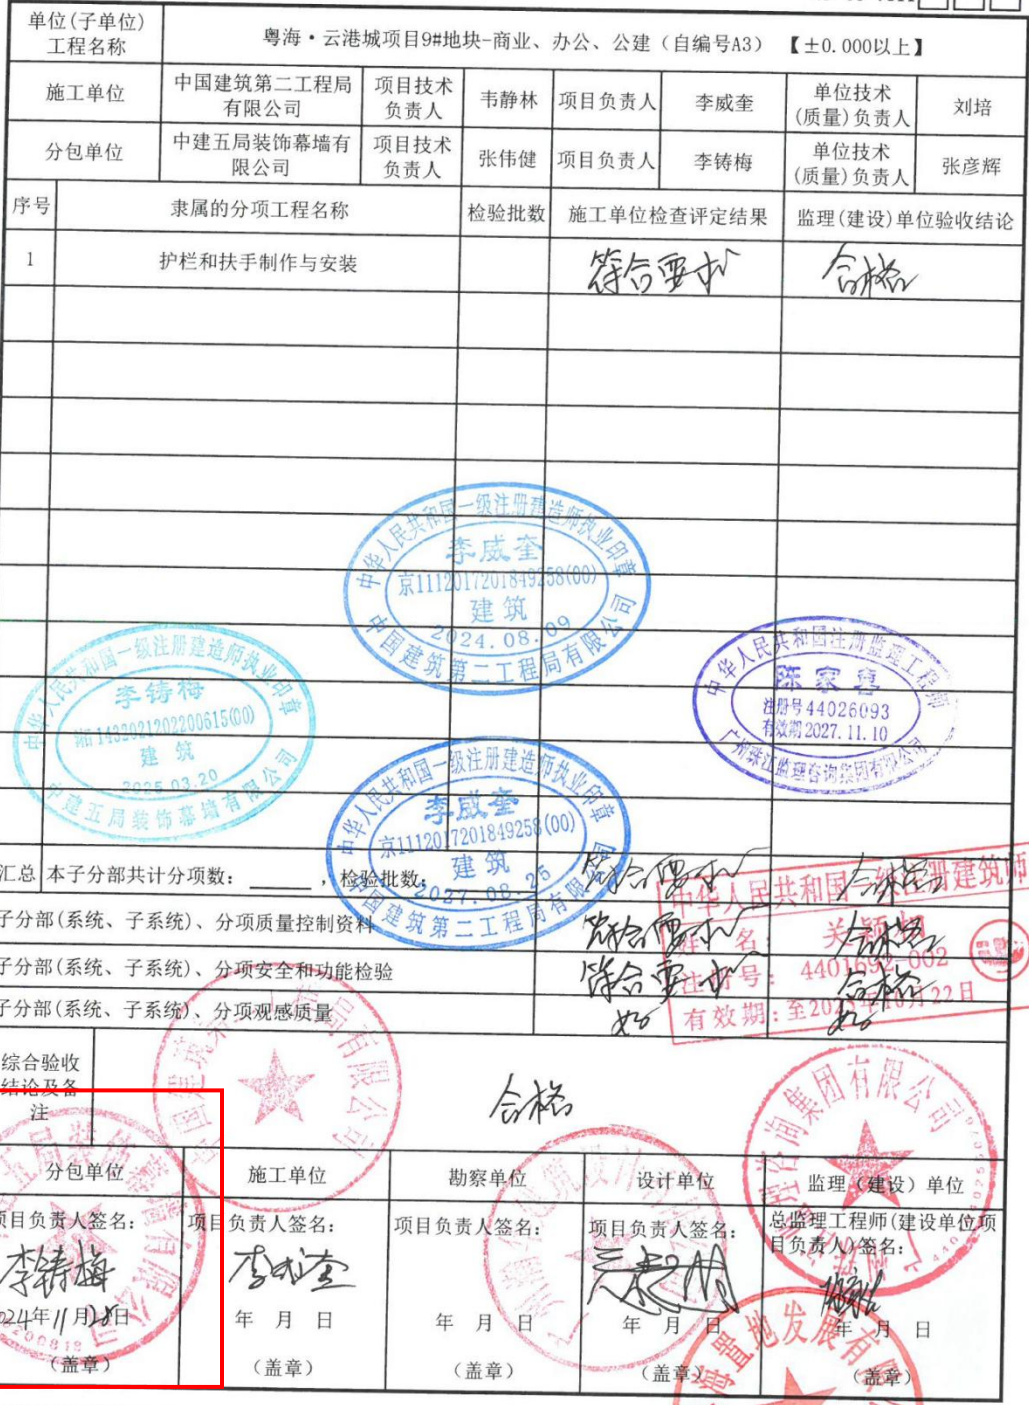 单位(子单位)
工程名称
粤海·云港城项目9#地块-商业、办公、公建（自编号A3）【±0.000以上】
施工单位
中国建筑第二工程局
有限公司
项目技术
负责人
韦静林
项目负责人
李威奎
单位技术
(质量)负责人
刘培
分包单位
中建五局装饰幕墙有
限公司
项目技术
负责人
张伟健
项目负责人
李铸梅
单位技术
(质量)负责人
张彦辉
序号
隶属的分项工程名称
检验批数
施工单位检查评定结果
监理(建设)单位验收结论
1
护栏和扶手制作与安装
符合要求
合格
中华人民共和国一级注册建造师执业印章
李威奎
京1112017201849258(00)
建筑
2024.08.09
中国建筑第二工程局有限公司
中华人民共和国一级注册建造师执业印章
李铸梅
1432021202200615(00)
建筑
2025.03.20
中建五局装饰幕墙有限公司
中华人民共和国注册监理工程师
陈家
注册号44026093
有效期2027.11.10
广州珠江监理咨询集团有限公司
中华人民共和国一级注册建造师执业印章
李威奎
京1112017201849258(00)
建筑
2027.08.25
中国建筑第二工程局有限公司
汇总
本子分部共计分项数：
，检验批数：
符合要求
合格
子分部(系统、子系统)、分项质量控制资料
符合要求
合格
子分部(系统、子系统)、分项安全和功能检验
符合要求
合格
子分部(系统、子系统)、分项观感质量
好
好
中华人民共和国一级注册建筑师
姓名：
关颖
注册号：
4401692-002
有效期：至2025年10月22日
综合验收
结论及备
注
合格
分包单位
施工单位
勘察单位
设计单位
监理（建设）单位
项目负责人签名：
项目负责人签名：
项目负责人签名：
项目负责人签名：
总监理工程师(建设单位项
目负责人)签名：
李铸梅
李威奎
024年11月28日
年 月 日
年 月 日
年 月 日
年 月 日
（盖章）
（盖章）
（盖章）
（盖章）
（盖章）